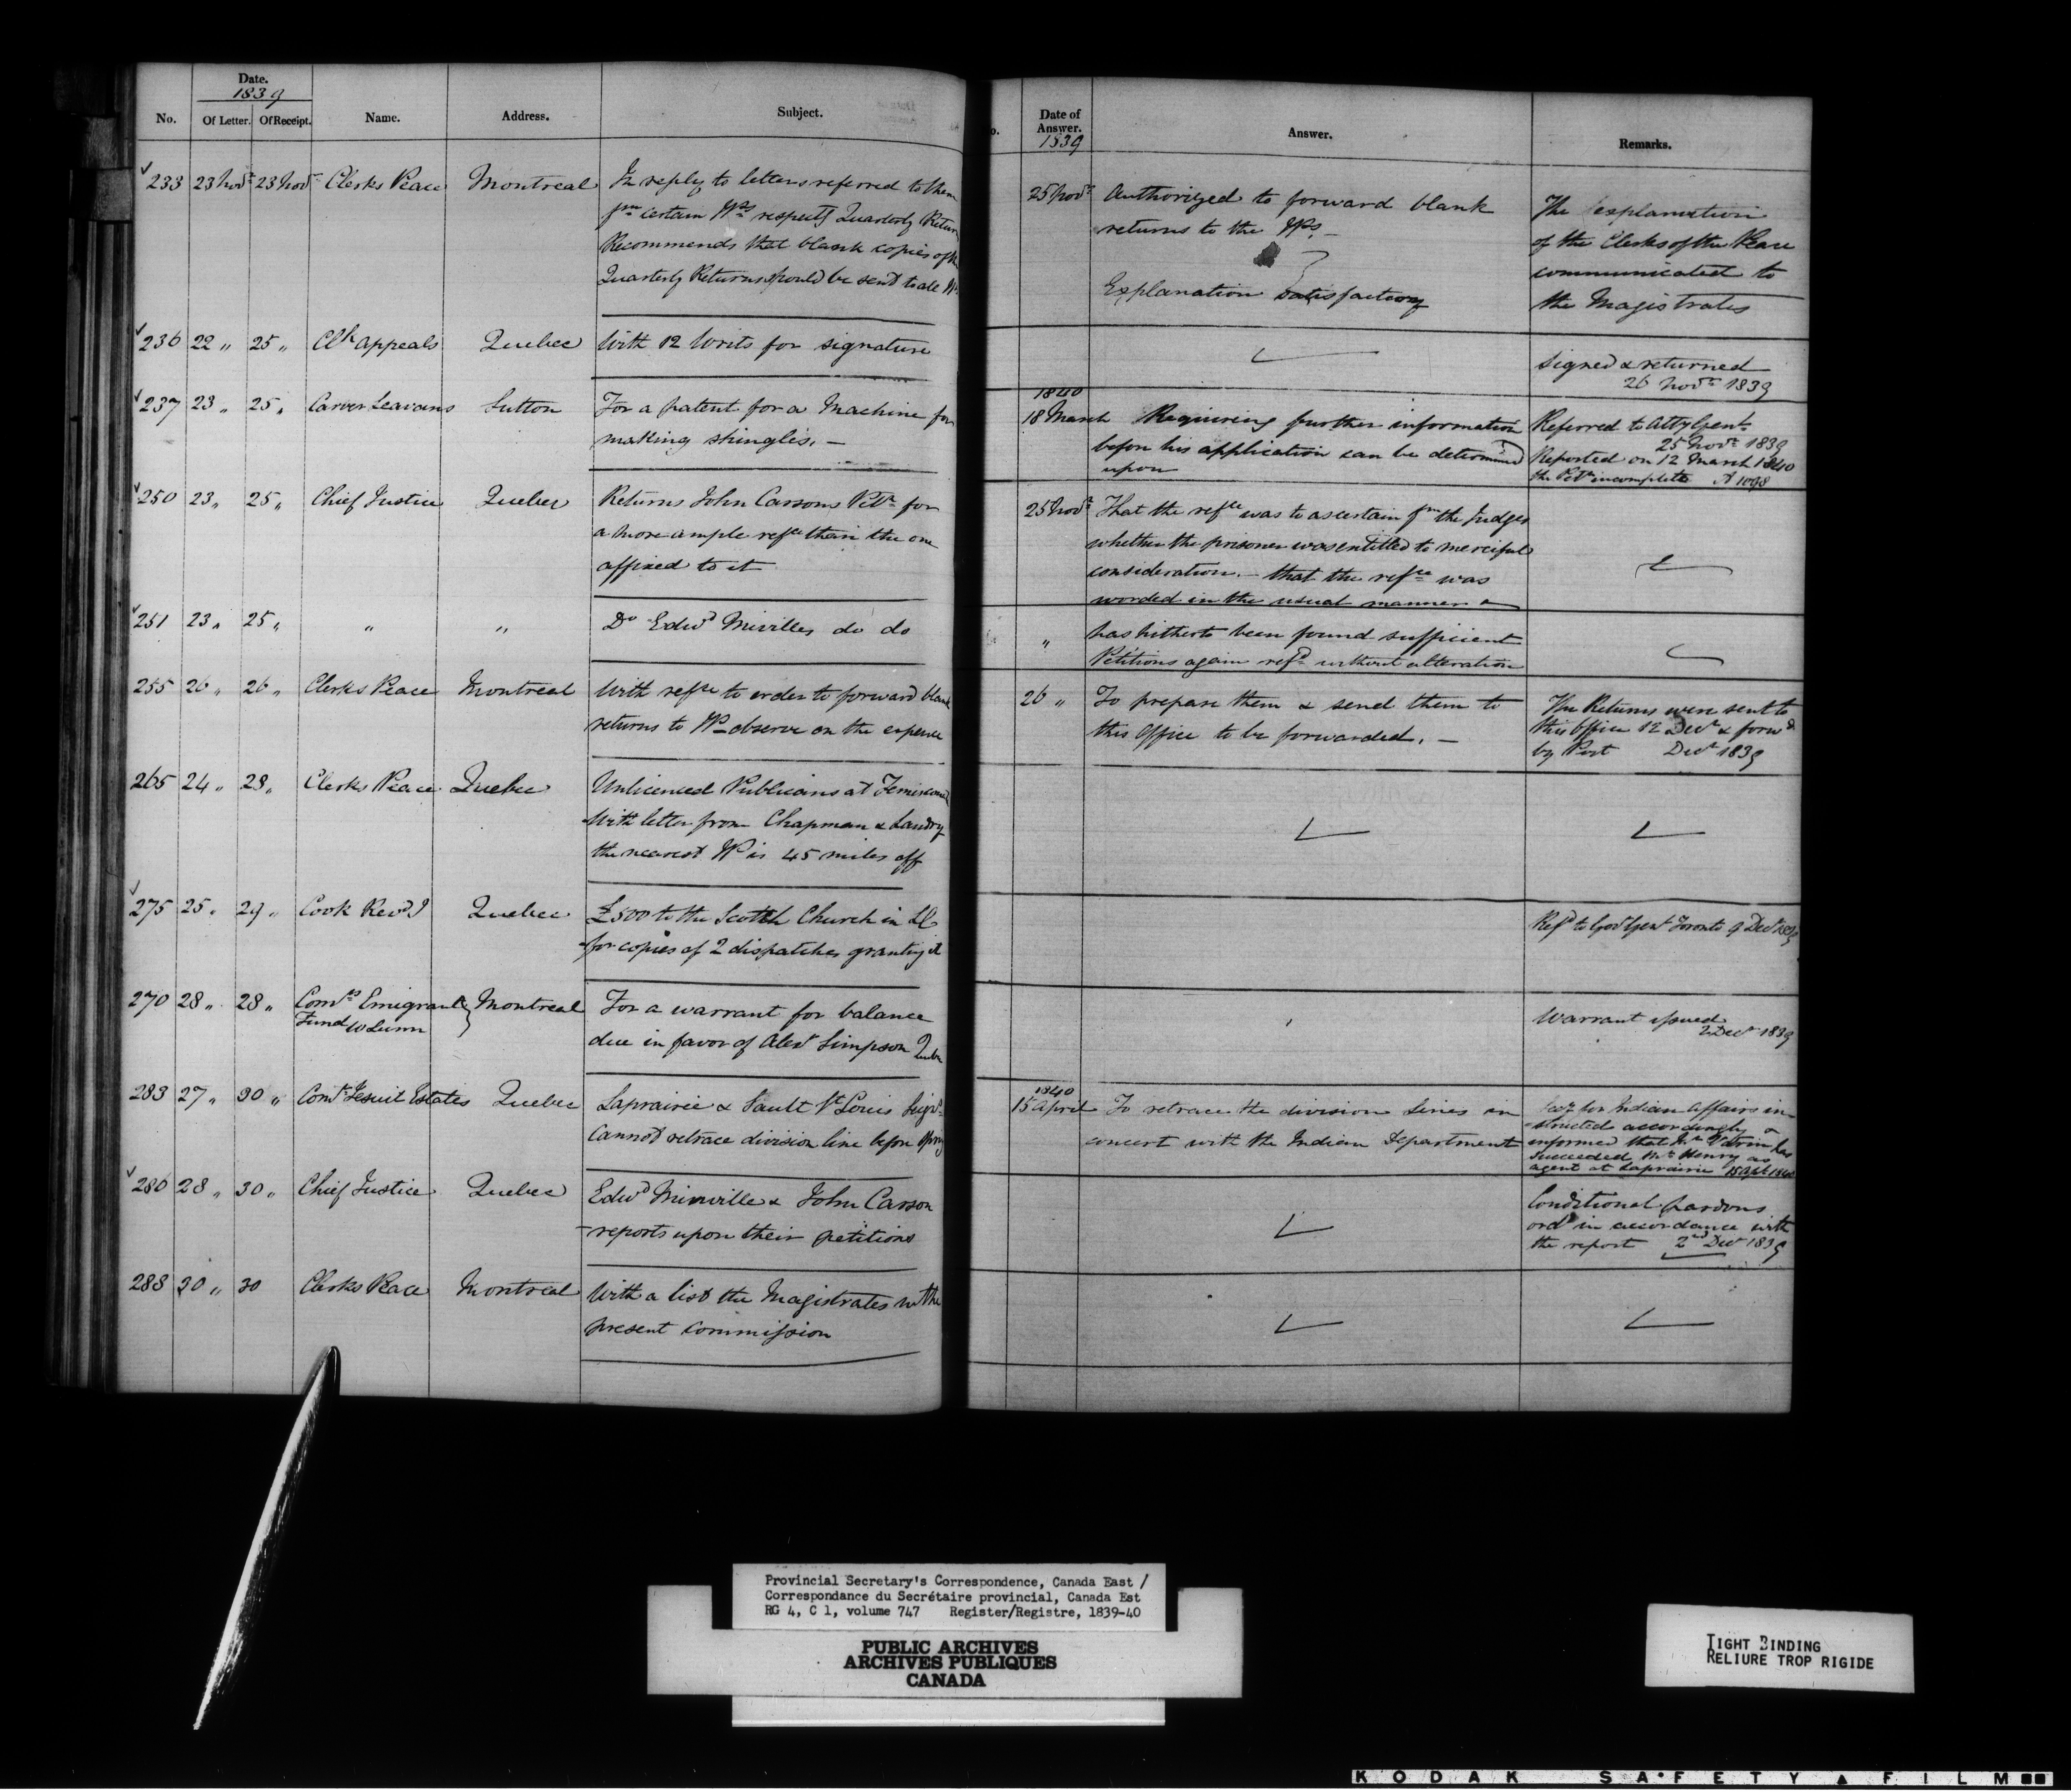 Date.
1839
No. Of Letter. Of Receipt. Name. Address. Subject.
233 23 Novr 23 Novr Clerks Peace Montreal In reply to letters referred to them
fm certain JPs respectg Quarterly Return
Recommends that blank copies of the
Quarterly Returns should be sent to all JPs
236 22 " 25 " Clk Appeals Quebec With 12 Writs for signature
237 23 " 25 " Carver Leavans Sutton For a patent for a Machine for
making shingles. —
250 23 " 25 " Chief Justice Quebec Returns John Carsons Petn for
a more ample refce than the one
affixed to it
251 23 " 25 " " " Do Edwd Mivilles do do
255 26 " 26 " Clerks Peace Montreal With refce to order to forward blank
returns to JPs observe on the expense
265 24 " 28 " Clerks Peace Quebec Unlicenced Publicans at
With letter from Chapman & Landry
the nearest JP is 45 miles off
275 25 " 29 " Cook Revd J Quebec £500 to the Scotch Church in LC
for copies of 2 dispatches granting it
270 28 " 28 " Comrs Emigrant Montreal For a warrant for balance
Fund W Lunn
due in favor of Alexr Simpson
283 27 " 30 " Comr Jesuit Estates Quebec Laprairie & Sault St Louis Seigs
Cannot retrace division line before Spring
286 28 " 30 " Chief Justice Quebec Edwd Minville & John Carson
– reports upon their petitions
288 30 " 30 Clerks Peace Montreal With a list the Magistrates in the
present commission
Date of
Answer.
1839
Answer. Remarks.
25 Novr Authorized to forward blank
returns to the JPs. —
Explanation satisfactory
The explanation
of the Clerks of the Peace
communicated to
the Magistrates
Signed & returned
26 Novr 1839
1840
18 March Requiring further information
before his application can be determined
upon
Referred to Atty Genl
25 Novr 1839
Reported on 12 March 1840
the Petn incomplete A 1098
25 Novr That the refce was to ascertain fm the Judges
whether the prisoner was entitled to merciful
consideration. — that the refce was
worded in the usual manner &
" has hitherto been found sufficient
Petitions again refd without alteration
26 " To prepare them & send them to
this Office to be forwarded. —
The Returns were sent to
this Office 12 Decr & forwd
by Post Decr 1839
Refd to Govr Genl Toronto 9 Decr 1839
Warrant issued
2 Decr 1839
1840
15 April To retrace the division lines in
concert with the Indian Department
Secy for Indian Affairs in-
structed accordingly &
informed that Mr has
succeeded Mr Henry as
agent at Laprairie 15 Apl 1840
Conditional pardons
ordd in accordance with
the report 2nd Decr 1839
Provincial Secretary's Correspondence, Canada East /
Correspondance du Secrétaire provincial, Canada Est
RG 4, C 1, volume 747 Register/Registre, 1839-40
PUBLIC ARCHIVES
ARCHIVES PUBLIQUES
CANADA
TIGHT BINDING
RELIURE TROP RIGIDE
KODAK SAFETY FILM